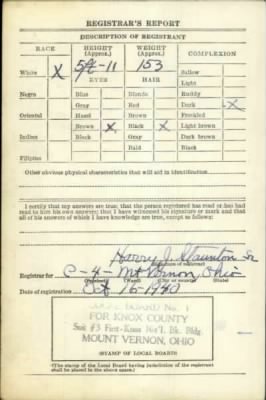 REGISTRAR'S REPORT
DESCRIPTION OF REGISTRANT
RACE HEIGHT (Approx.) WEIGHT (Approx.) COMPLEXION
White X 5ft-11 153 Sallow
EYES HAIR Light
Negro Blue Blonde Ruddy
Gray Red Dark X
Oriental Hazel Brown Freckled
Brown X Black X Light brown
Indian Black Gray Dark brown
Bald Black
Filipino
Other obvious physical characteristics that will aid in identification
I certify that my answers are true; that the person registered has read or has had
read to him his own answers; that I have witnessed his signature or mark and that
all of his answers of which I have knowledge are true, except as follows:
Harry J. Staunton Jr
(Signature of registrar)
Registrar for C-4- Mt Vernon, Ohio
(Precinct) (Ward) (City or county) (State)
Date of registration Oct 16-1940
LOCAL BOARD No. 1
FOR KNOX COUNTY
Suite #3 First-Knox Nat'l. Bk. Bldg.
MOUNT VERNON, OHIO
(STAMP OF LOCAL BOARD)
(The stamp of the Local Board having jurisdiction of the registrant
shall be placed in the above space.)